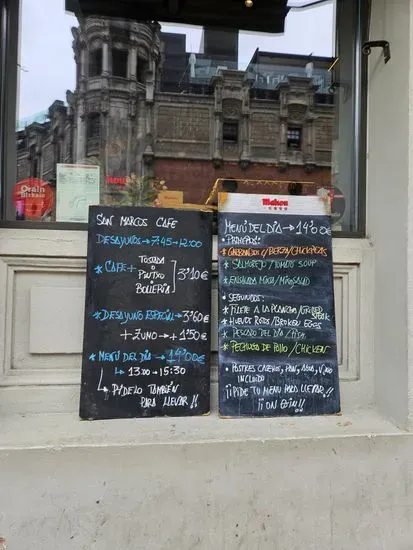 SAN MARCOS CAFE
DESAYUNOS → 7:45 - 12:00
* CAFE +
TOSTADA
O
PINTXO
O
BOLLERÍA
3'10€
* DESAYUNO ESPECIAL → 3'60€
+ ZUMO → + 1'50€
* MENÚ DEL DÍA → 14'00€
↳ 13:00 - 15:30
↳ PÍDELO TAMBIÉN
PARA LLEVAR!!
Mahou
MENÚ DEL DÍA → 14'00€
• PRIMEROS:
* GARBANZOS / BERZA / CHICKPEAS
* SALMOREJO / TOMATO SOUP
* ENSALADA MIXTA / MIX SALAD
• SEGUNDOS:
* FILETE A LA PLANCHA / GRILLED
STEAK
* HUEVOS ROTOS / BROKEN EGGS
* PESCADO DEL DÍA / FISH
* PECHUGA DE POLLO / CHICKEN
• POSTRES CASEROS, PAN, AGUA, VINO
INCLUIDO
¡¡PIDE TU MENÚ PARA LLEVAR!!
¡¡ON EGIN!!
Orain
Bizkaia
Mahou